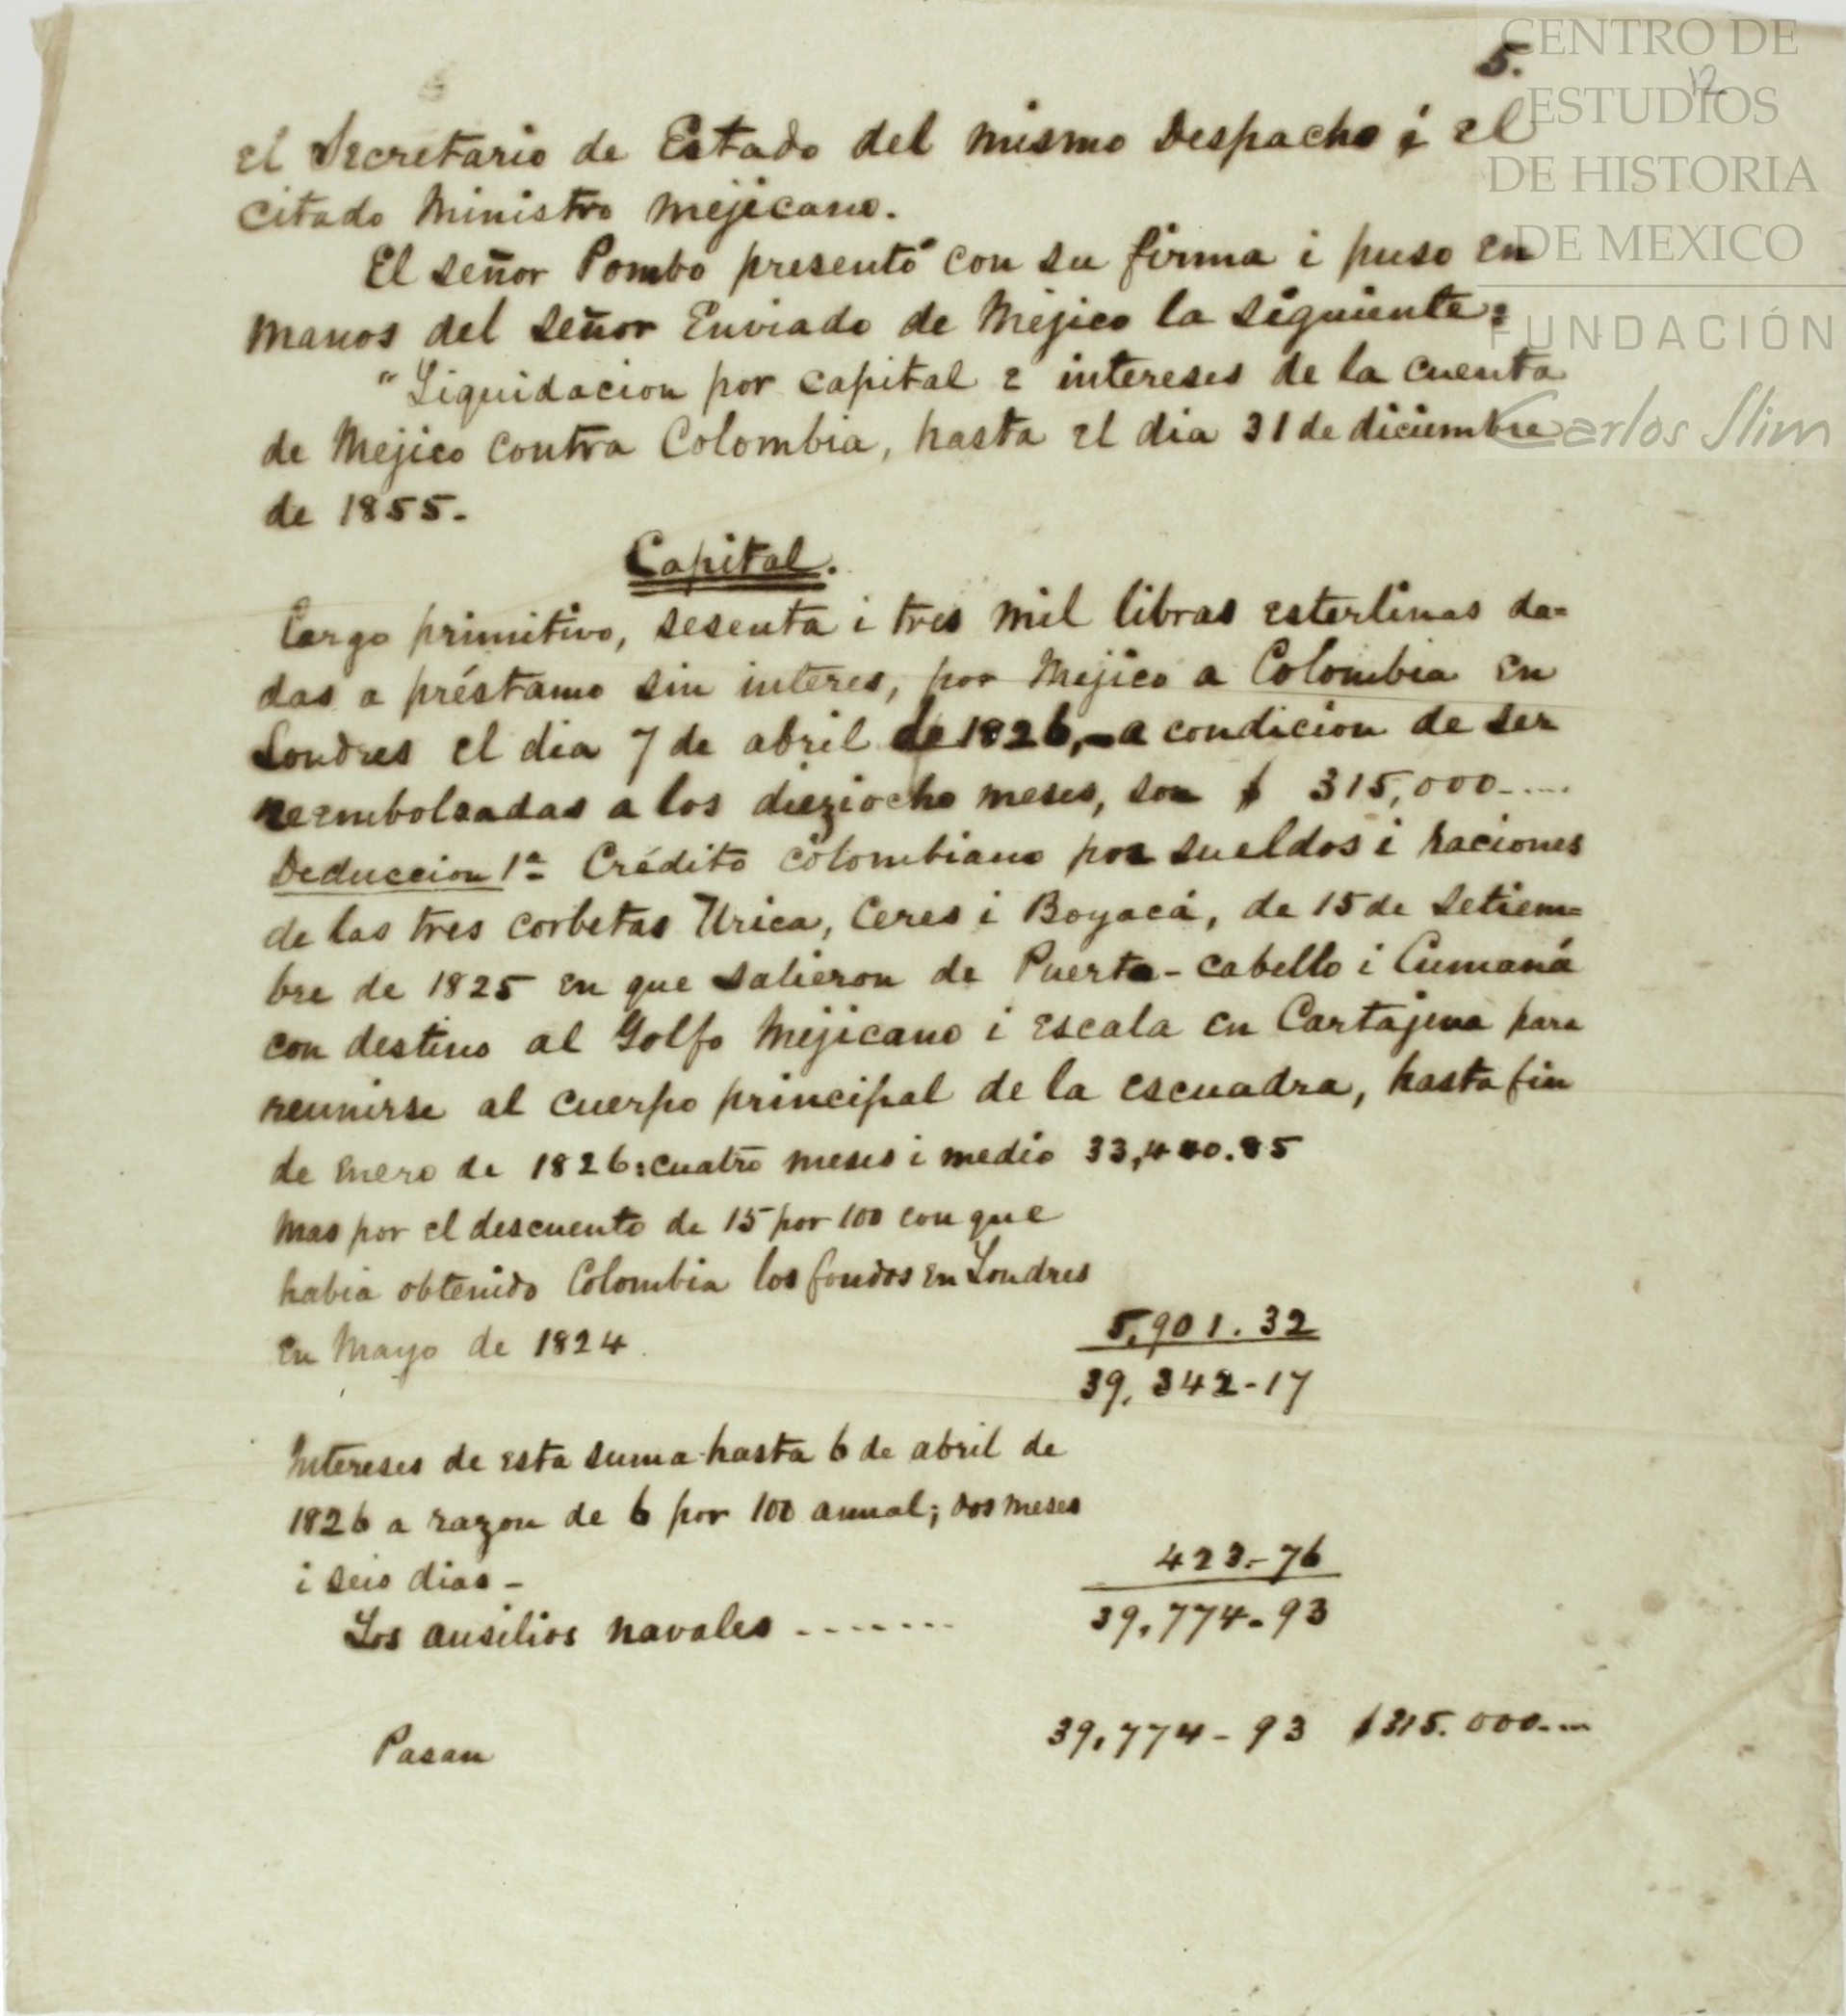 CENTRO DE
ESTUDIOS
DE HISTORIA
DE MEXICO
FUNDACIÓN
Carlos Slim
5.
12
el Secretario de Estado del mismo Despacho i el
citado Ministro mejicano.
El señor Pombo presentó con su firma i puso en
manos del señor Enviado de Méjico la siguiente:
"Liquidacion por capital e intereses de la cuenta
de Méjico contra Colombia, hasta el dia 31 de diciembre
de 1855.
Capital.
Cargo primitivo, sesenta i tres mil libras esterlinas da=
das a préstamo sin interes, por Méjico a Colombia en
Londres el dia 7 de abril de 1826, a condicion de ser
reembolsadas a los dieziocho meses, son $ 315,000.....
Deduccion 1ª Crédito colombiano por sueldos i raciones
de las tres corbetas Urica, Ceres i Boyacá, de 15 de Setiem=
bre de 1825 en que salieron de Puerto-cabello i Cumaná
con destino al Golfo Mejicano i escala en Cartajena para
reunirse al cuerpo principal de la escuadra, hasta fin
de Enero de 1826: cuatro meses i medio 33,440.85
Mas por el descuento de 15 por 100 con que
habia obtenido Colombia los fondos en Londres
en Mayo de 1824. 5,901.32
39,342-17
Intereses de esta suma hasta 6 de abril de
1826 a razon de 6 por 100 anual; dos meses
i seis dias - 423.-76
Los ausilios navales ....... 39,774-93
Pasan 39,774-93 $315.000....